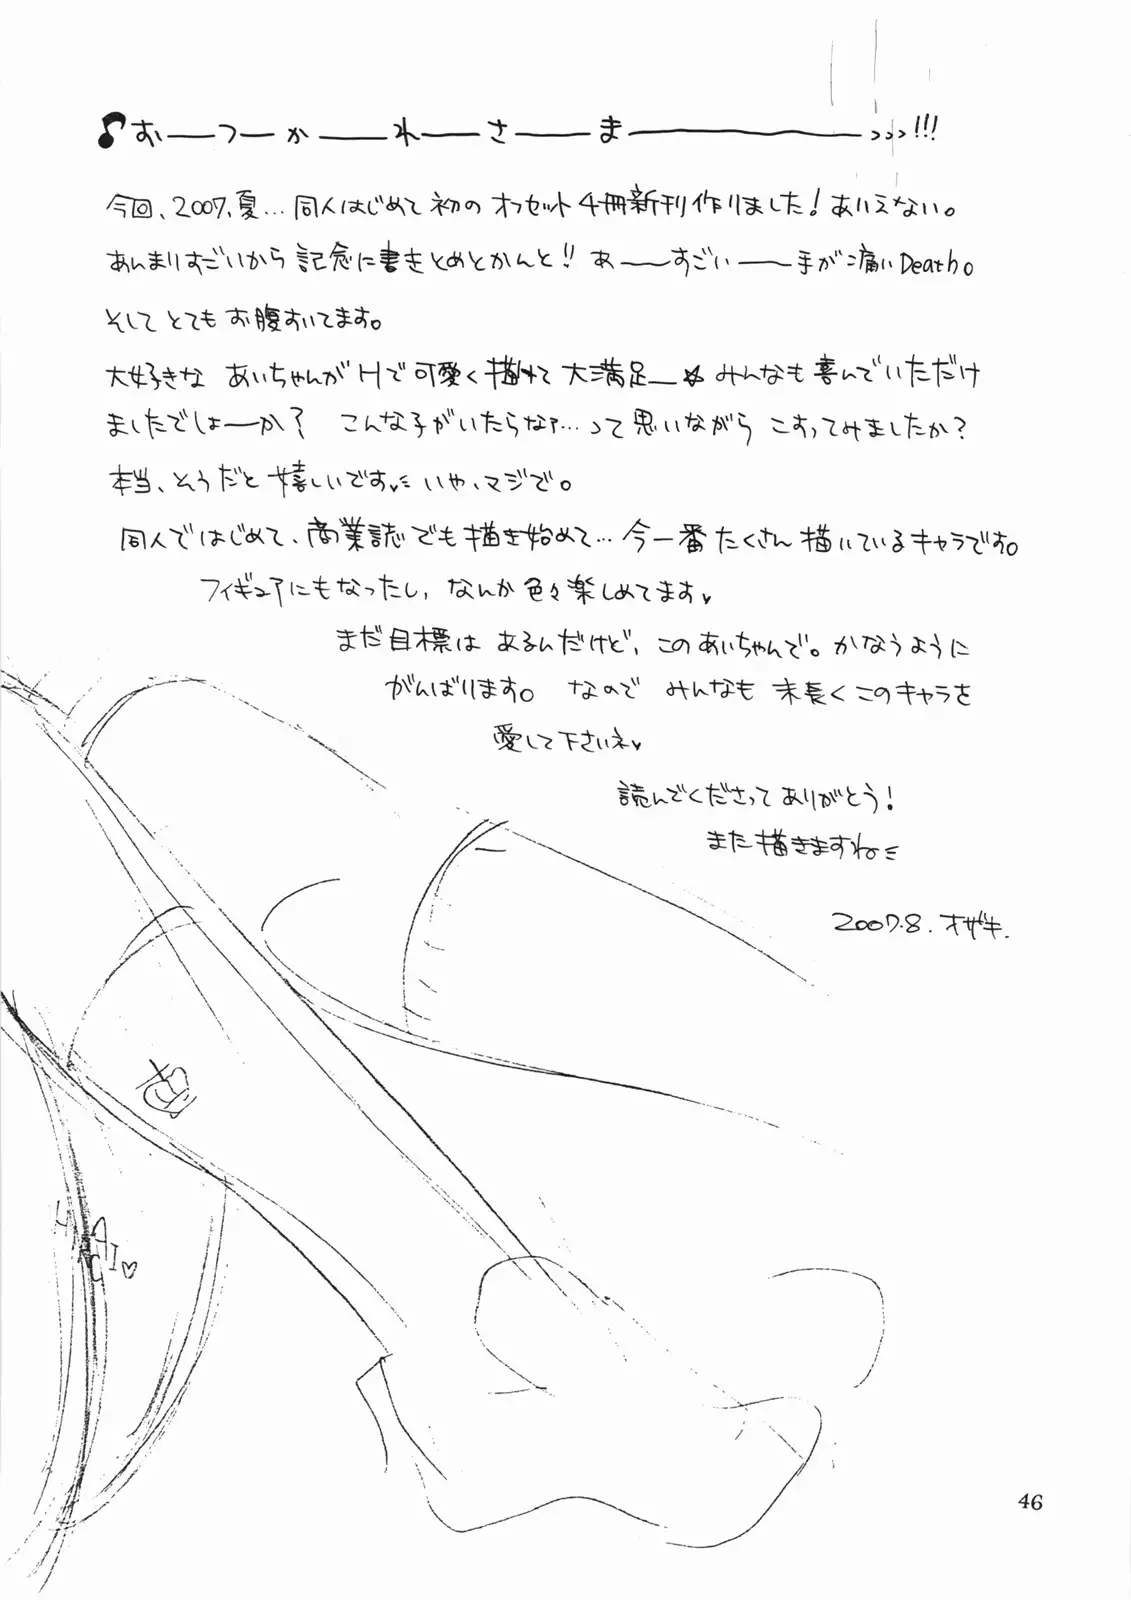 ♪お——つ—か——れ——さ——ま————————>>>!!!
今回、2007、夏…同人はじめて初のオフセット4冊新刊作りました！ありえない。
あんまりすごいから記念に書きとめとかんと!! あ——すごい——手が痛いDeath。
そしてとてもお腹すいてます。
大好きな あいちゃんがHで可愛く描けて大満足—☆みんなも喜んでいただけ
ましたでしょーか？ こんな子がいたらなァ…って思いながら こすってみましたか？
本当、そうだと嬉しいです♥ いや、マジで。
同人ではじめて、商業誌でも描き始めて…今一番たくさん描いているキャラです。
フィギュアにもなったし、なんか色々楽しめてます♥
まだ目標はあるんだけど、このあいちゃんで。かなうように
がんばります。なので みんなも末長くこのキャラを
愛して下さいネ♥
読んでくださってありがとう！
また描きますね
2007.8. オザキ.
AI♡
46